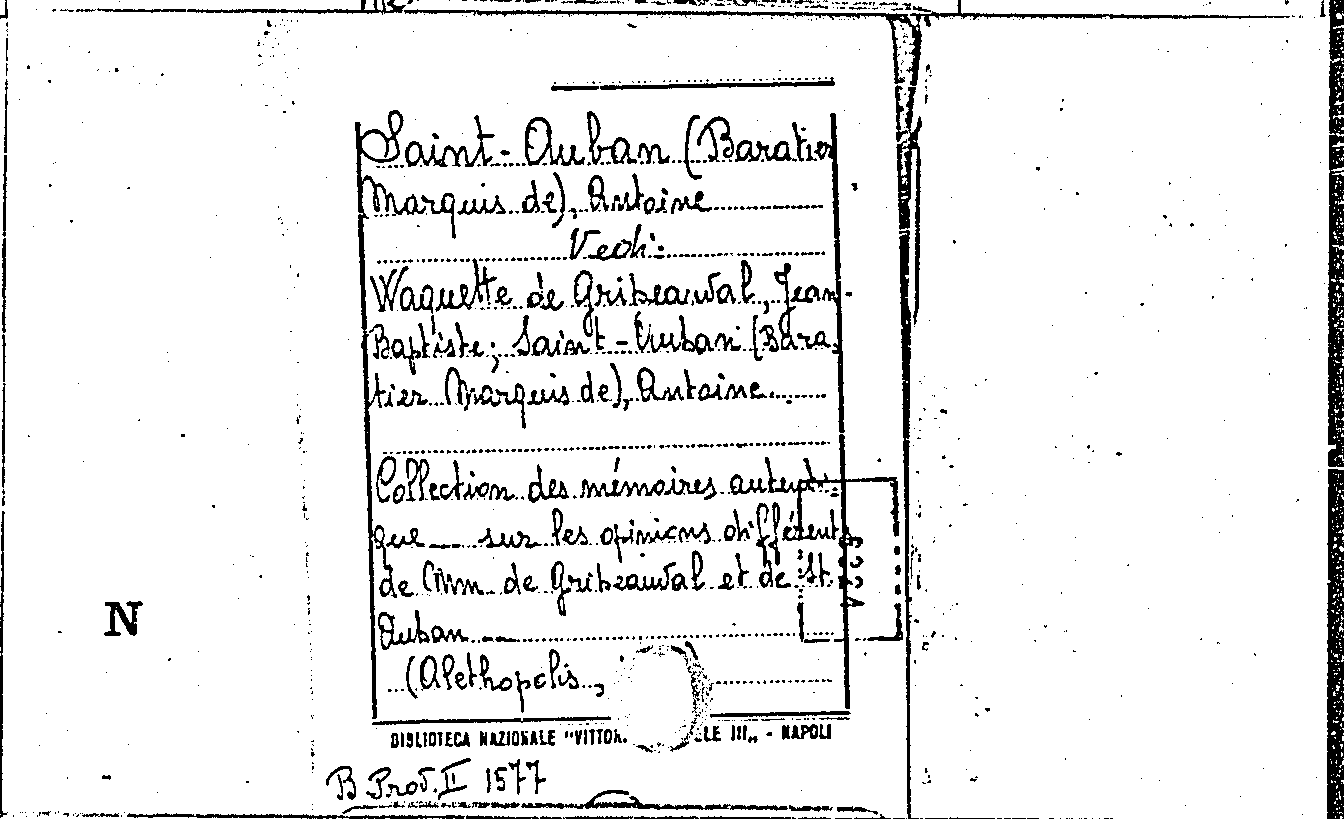 Saint-Auban (Baratier
Marquis de), Antoine
Vedi:
Waquette de Gribeauval, Jean-
Baptiste; Saint-Auban (Bara-
tier Marquis de), Antoine
Collection des mémoires autenti-
que __ sur les opinions différent
de Mm. de Gribeauval et de St.
Auban __
(Alethopolis,
BIBLIOTECA NAZIONALE "VITTOR. ELE III„ - NAPOLI
B Prov. II 1577
N